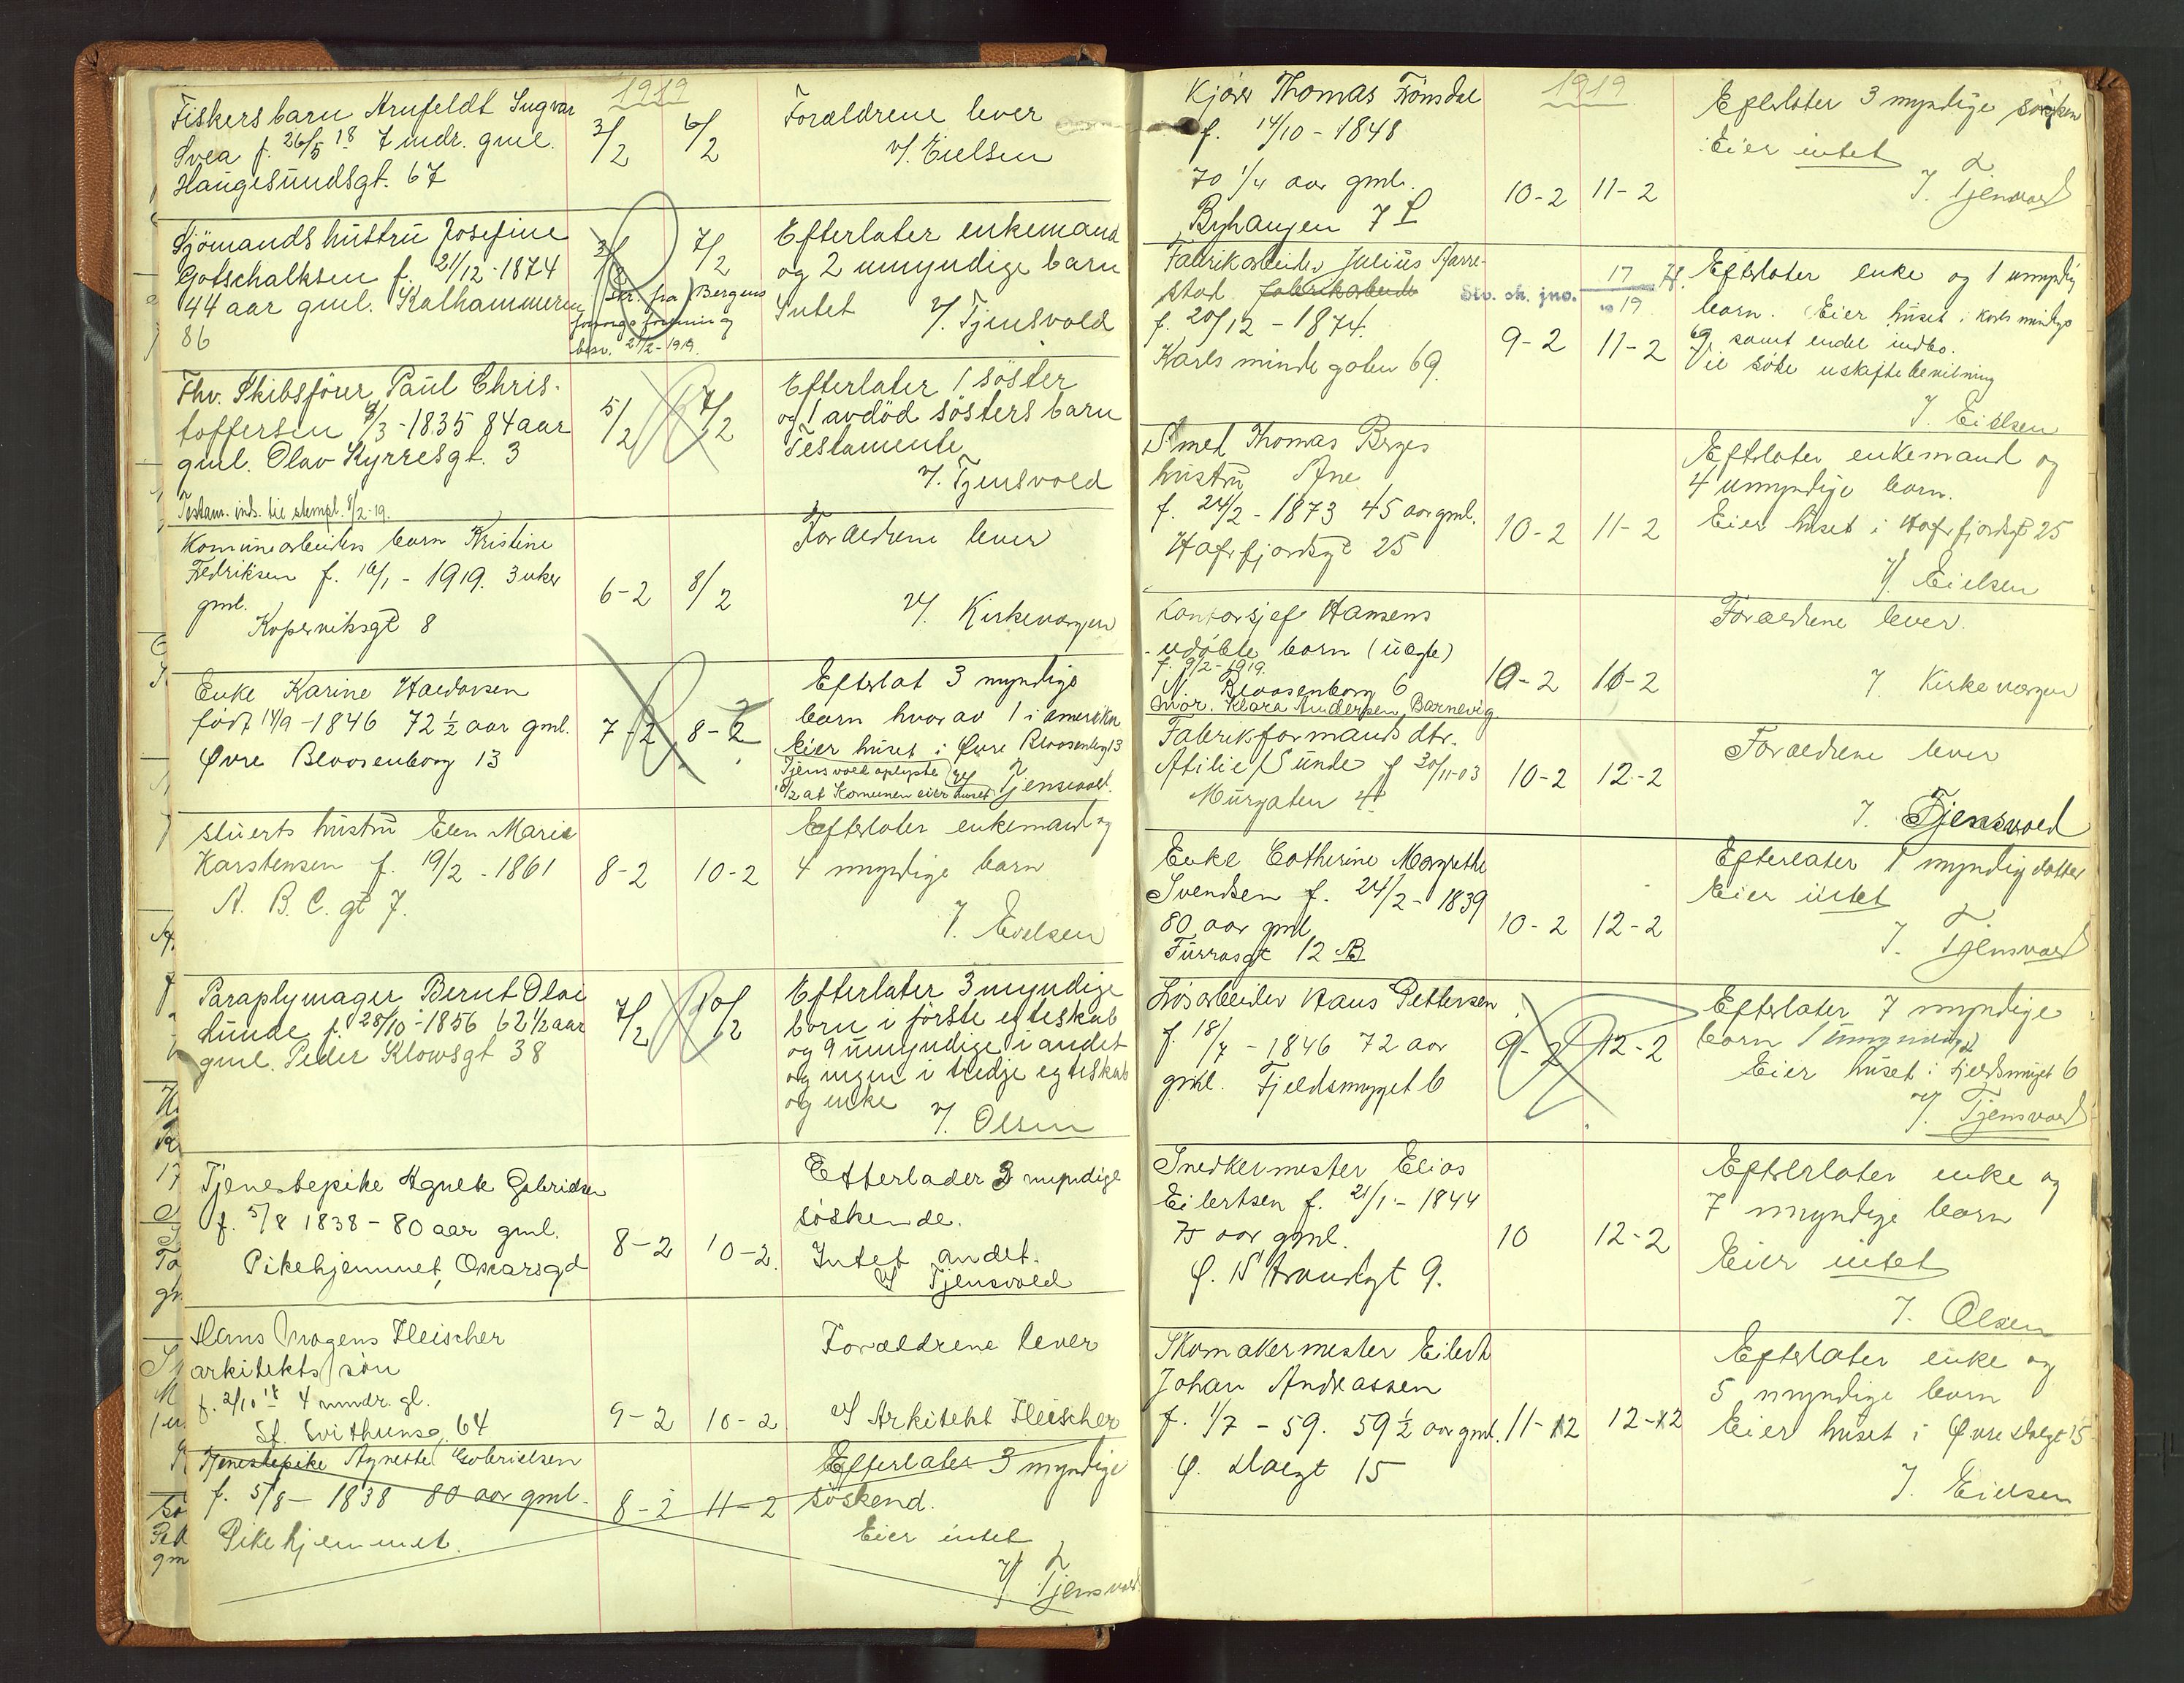 1919
Fiskers barn Arnfeldt Ingvar
Svea f. 26/5 18 7 mdr. gml.
Haugesundsgt. 67
3/2
6/2
Forældrene lever
v/. Eielsen
Sjömandshustru Josefine
Gotschalksen f. 21/12-1874
44 aar gml. Kalhammeren
86
3/2
7/2
Skr. fra Bergens
forsorgsforening
besv. 21/2-1919.
Efterlater enkemand
og 2 umyndige barn
Intet v/. Tjensvold
Fhv. Skibsförer Paul Chris-
toffersen 8/3-1835 84 aar
gml. Olav Kyrresgt. 3
Testam. inds. til stempl. 8/2-19.
5/2
7/2
Efterlater 1 söster
og 1 avdöd sösters barn
Testamente
v/. Tjensvold
Komunearbeiders barn Kristine
Fredriksen f. 16/1-1919. 3 uker
gml.
Koperviksgt 8
6-2
8/2
Forældrene lever
v/. Kirkevergen
Enke Karine Haldorsen
född 14/9-1846 72 1/2 aar gml.
Øvre Blaasenborg 13
7-2
8-2
Efterlat 3 myndige
barn hvorav 1 i amerika
Eier huset i Øvre Blaasenborg 13
Tjensvold oplyste
10/2 at Komunen eier huset
v/ Tjensvold.
Stuerts hustru Elen Marie
Karstensen f. 19/2-1861
A. B. C. gt 7.
8-2
10-2
Efterlater enkemand og
4 myndige barn
v/. Eielsen
Paraplymager Bernt Olai
Lunde f. 28/10-1856 62 1/2 aar
gml. Peder Klowsgt 38
7/2
10/2
Efterlater 3 myndige
born i förste egteskab
og 9 umyndige i andet
og ingen i tredje egteskab
og enke
v/. Olsen
Tjenestepike Agnete Gabrielsen
f. 5/8 1838 - 80 aar gml.
Pikehjemmet, Oscarsgd
8-2
10-2.
Etterlader 3 myndige
söskende.
Intet andet.
v/ Tjensvold
Hans Mogens Fleischer
arkitekts sön
f. 2/10 18 4 mndr. gl.
St. Svithunsg. 64
9-2
10-2
Forældrene lever
v/ Arkitekt Fleischer
Tjenestepike Agnette Gabrielsen
f. 5/8-1838 80 aar gml.
Pikehjemmet.
8-2
11-2
Efterlater 3 myndige
söskend.
Eier intet
v/ Tjensvold
1919
Kjörer Thomas Frönsdal
f. 14/10-1848
70 1/4 aar gml.
Byhaugen 7
10-2
11-2
Efterlater 3 myndige søsken
Eier intet
v/. Tjensvold
Fabrikarbeider Julius Harre-
stad fabrikarbeide
f. 20/12-1874.
Karlsmindegaten 69.
Stv. sk. jno. 17/1919
9-2
11-2
Efterlater enke og 1 umyndig
barn. Eier huset i Karlsmindegt
69 samt endel indbo.
Vil söke uskiftebevilning
v/. Eielsen
Smed Thomas Berges
hustru Ane
f. 24/2-1873 45 aar gml.
Hafrsfjordsgt 25
10-2
11-2
Efterlater enkemand og
4 umyndige barn.
Eier huset i Hafrsfjordsgt 25
v/ Eielsen
Kontorsjef Hansens
udöbte barn (uegte)
f. 9/2-1919.
Blaasenborg 6
Mor. Klara Andersen, Barnevig
10-2
11-2
Forældrene lever.
v/. Kirkevergen
Fabrikformands dtr.
Atilie Sunde f 30/11-03
Murgaten 4
10-2
12-2
Forældrene lever
v/. Tjensvold
Enke Catherine Margrethe
Svendsen f. 24/2-1839
80 aar gml
Furrasgt 12 B
10-2
12-2
Efterlater 1 myndig datter
Eier intet
v/. Tjensvold
Lösarbeider Hans Pettersen
f. 18/7-1846 72 aar
gml. Fjeldsmuget 6
9-2
12-2
Efterlater 7 myndige
barn 1 umyndig
Eier huset i Fjeldsmuget 6
v/. Tjensvold
Snedkermester Elias
Eilertsen f. 21/1-1844
75 aar gml.
Ø. Strandgt 9.
10
12-2
Efterlater enke og
7 myndige barn
Eier intet
v/. Olsen
Skomakermester Eilert
Johan Andreassen
f. 1/7-59. 59 1/2 aar gml.
Ø. Dalgt 15
11-2
12-2
Efterlater enke og
5 myndige barn
Eier huset i Øvre Dalgt 15
v/. Eielsen